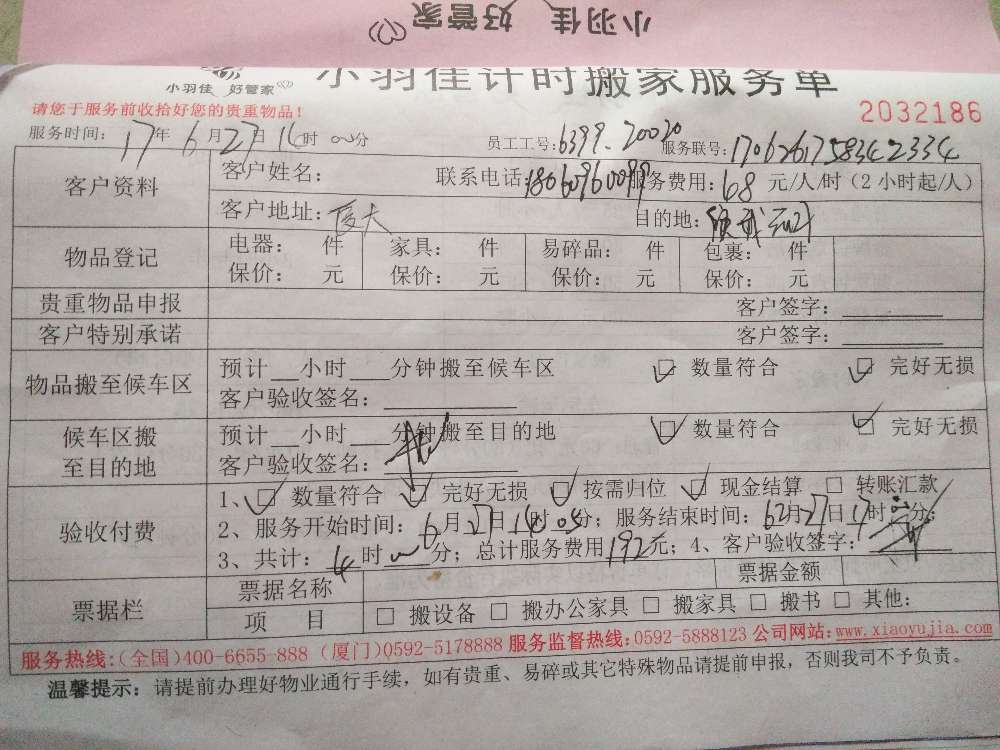 小羽佳 好管家
小羽佳 好管家 小羽佳计时搬家服务单
请您于服务前收拾好您的贵重物品! 2032186
服务时间: 17年6月27日14时00分 员工工号:6399、20020 服务联号:1706261758342334
客户资料 客户姓名: 联系电话:18060960099 服务费用:68元/人/时(2小时起/人)
客户地址:厦大 目的地:
物品登记 电器: 件 家具: 件 易碎品: 件 包裹: 件
保价: 元 保价: 元 保价: 元 保价: 元
贵重物品申报 客户签字:
客户特别承诺 客户签字:
物品搬至候车区 预计__小时___分钟搬至候车区 ☑ 数量符合 ☑ 完好无损
客户验收签名:
候车区搬至目的地 预计__小时___分钟搬至目的地 ☑ 数量符合 ☑ 完好无损
客户验收签名:
验收付费 1、☑ 数量符合 ☑ 完好无损 ☑ 按需归位 ☑ 现金结算 □ 转账汇款
2、服务开始时间:6月27日14时00分;服务结束时间:6月27日17时 分;
3、共计:4时00分;总计服务费用192元;4、客户验收签字:
票据栏 票据名称 票据金额
项 目 □ 搬设备 □ 搬办公家具 □ 搬家具 □ 搬书 □ 其他:
服务热线:(全国)400-6655-888 (厦门)0592-5178888 服务监督热线:0592-5888123 公司网站:www.xiaoyujia.com
温馨提示:请提前办理好物业通行手续,如有贵重、易碎或其它特殊物品请提前申报,否则我司不予负责。